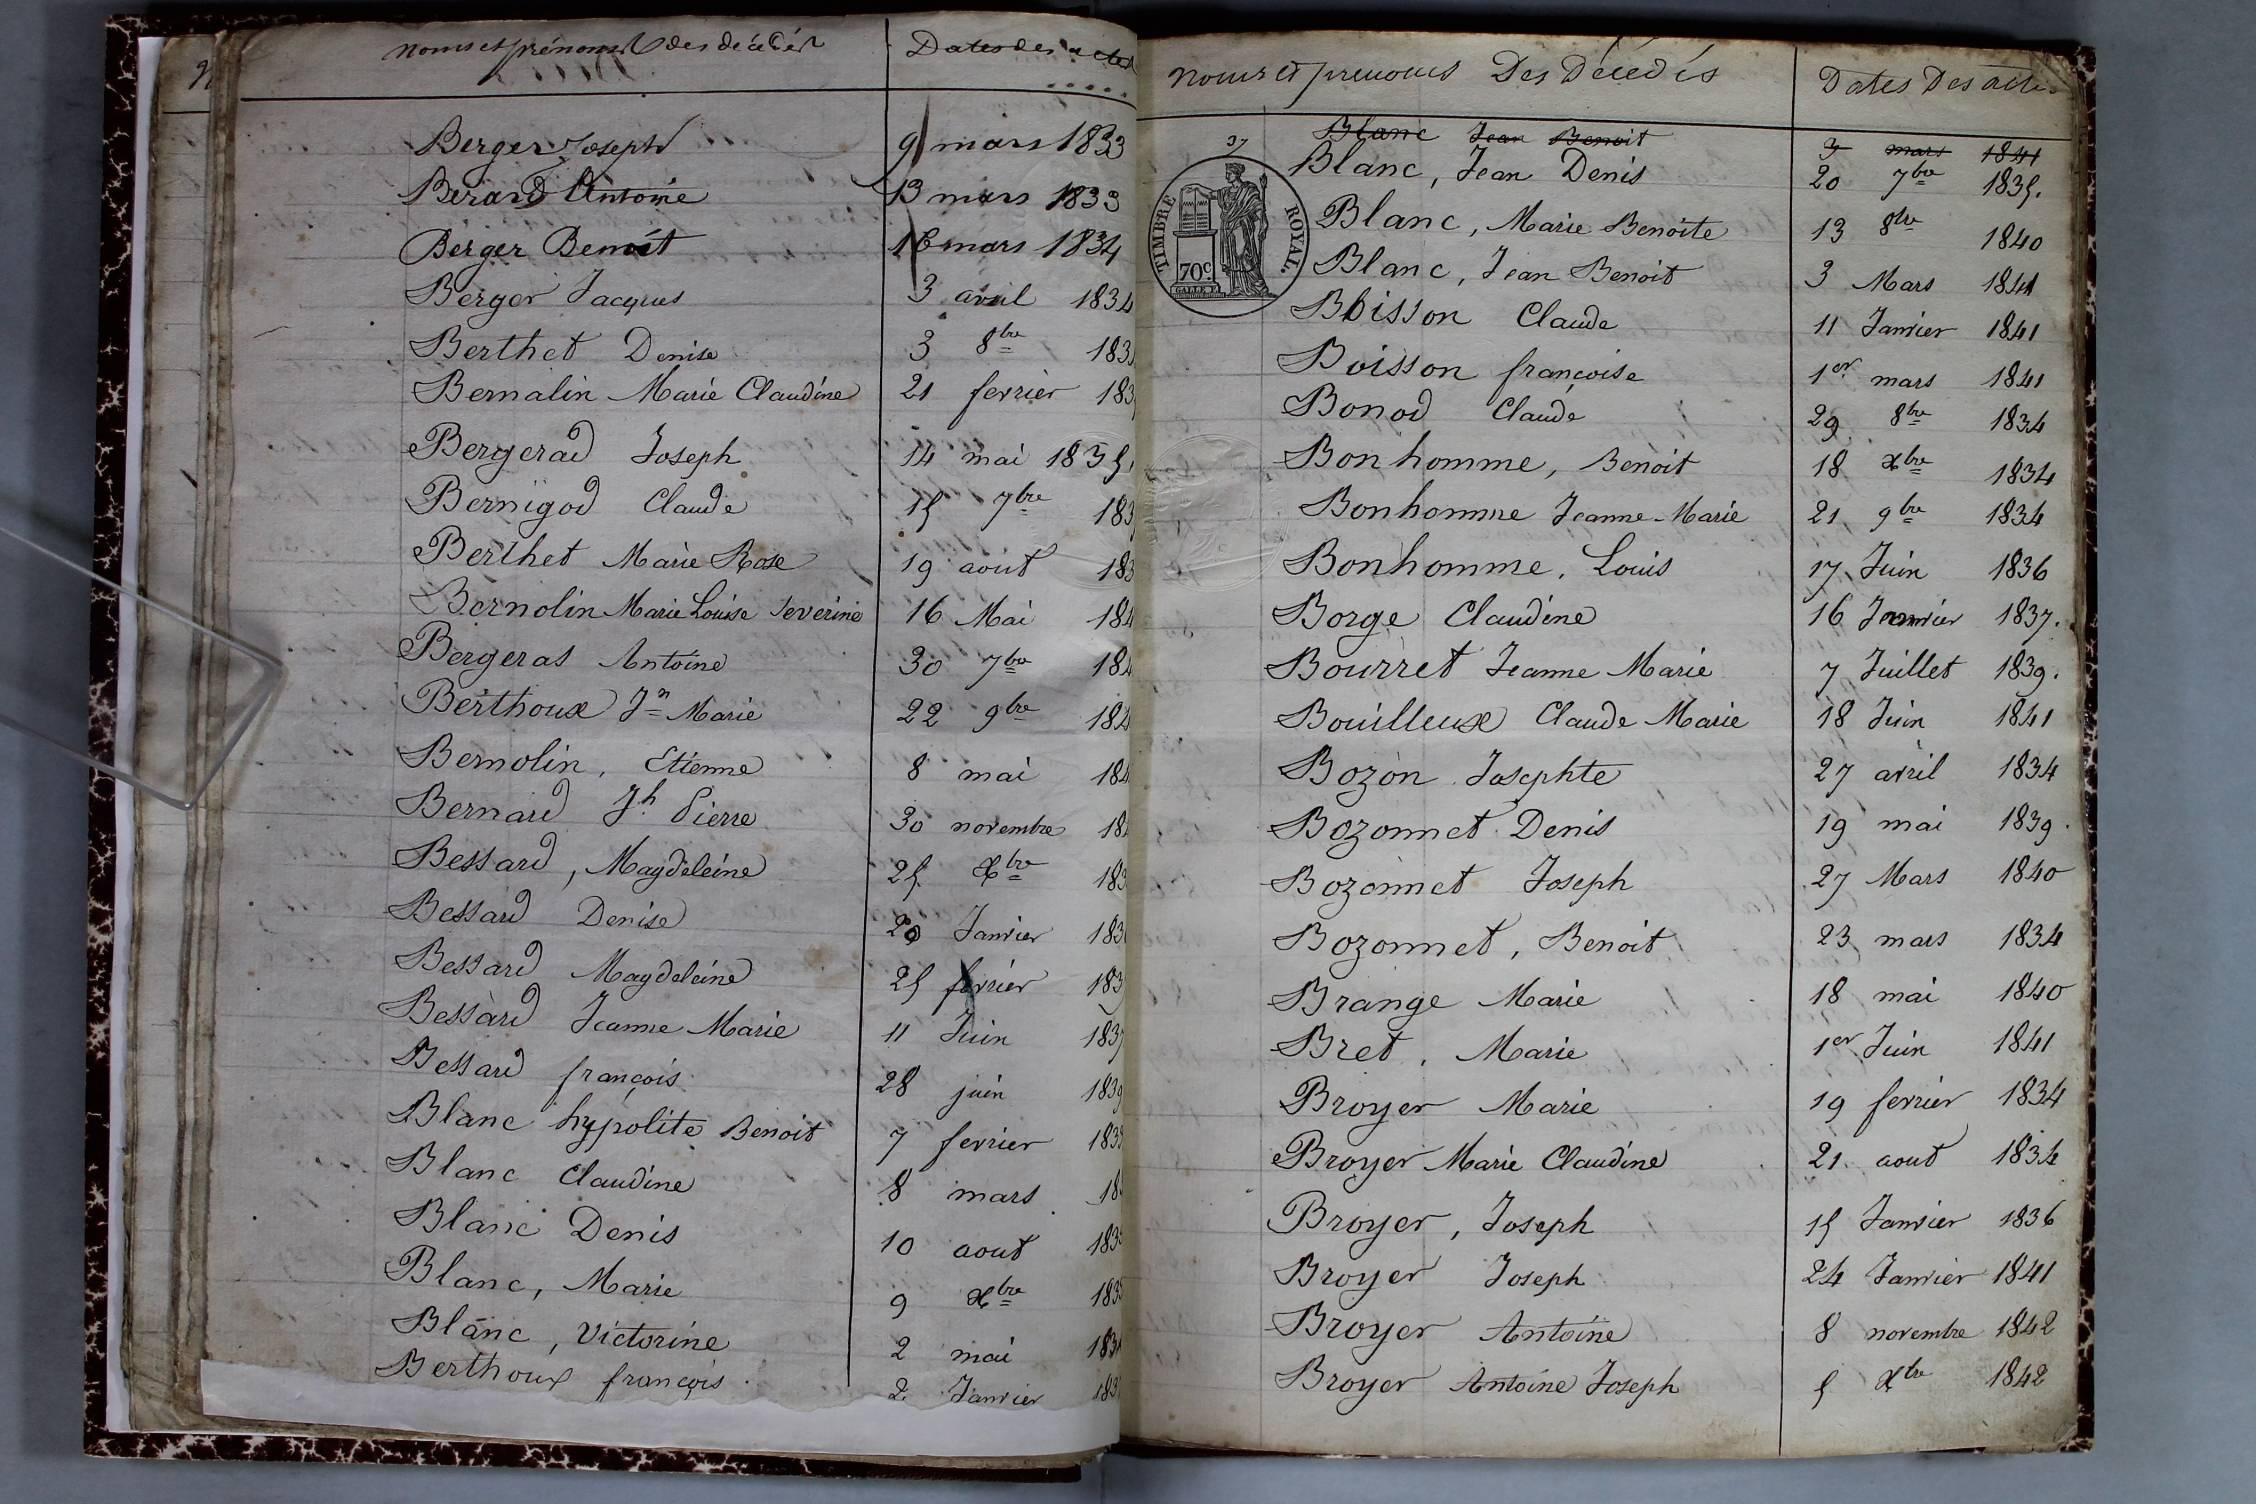 Noms et prénoms des décédés Dates des actes
Berger Joseph 9 mars 1833
Berard Antoine 13 mars 1833
Berger Benoit 16 mars 1834
Berger Jacques 3 avril 1834
Berthet Denise 3 8bre 183
Bernalin Marie Claudine 21 fevrier 183
Bergerad Joseph 14 mai 1835.
Bernigod Claude 15 7bre 183
Berthet Marie Rose 19 aout 183
Bernolin Marie Louise Severine 16 Mai 184
Bergeras Antoine 30 7bre 184
Berthoux Jn Marie 22 9bre 184
Bernolin, Etienne 8 mai 184
Bernard Jh Pierre 30 novembre 18
Bessard, Magdeleine 25 Xbre 183
Bessard Denise 20 Janvier 183
Bessard Magdeleine 25 fevrier 183
Bessard Jeanne Marie 11 Juin 1837
Bessard françois 28 juin 1839
Blanc hypolite Benoit 7 fevrier 183
Blanc Claudine 8 mars 18
Blanc Denis 10 aout 183
Blanc, Marie 9 Xbre 183
Blanc, Victorine 2 mai 183
Berthoux françois 2 Janvier 183
Noms et prenoms Des Décedés Dates Des actes
37
TIMBRE ROYAL.
70c.
Blanc Jean Benoit 3 mars 1841
Blanc, Jean Denis 20 7bre 1835.
Blanc, Marie Benoite 13 8bre 1840
Blanc, Jean Benoit 3 Mars 1841
Boisson Claude 11 Janvier 1841
Boisson françoise 1er mars 1841
Bonod Claude 29 8bre 1834
Bonhomme, Benoit 18 Xbre 1834
Bonhomme Jeanne-Marie 21 9bre 1834
Bonhomme, Louis 17 Juin 1836
Borge Claudine 16 Janvier 1837.
Bourret Jeanne Marie 7 Juillet 1839.
Bouilleux Claude Marie 18 Juin 1841
Bozon Josephte 27 avril 1834
Bozonnet Denis 19 mai 1839.
Bozonnet Joseph 27 Mars 1840
Bozonnet, Benoit 23 mars 1834
Brange Marie 18 mai 1840
Bret, Marie 1er Juin 1841
Broyer Marie 19 fevrier 1834
Broyer Marie Claudine 21 aout 1834
Broyer, Joseph 15 Janvier 1836
Broyer Joseph 24 Janvier 1841
Broyer Antoine 8 novembre 1842
Broyer Antoine Joseph 5 Xbre 1842